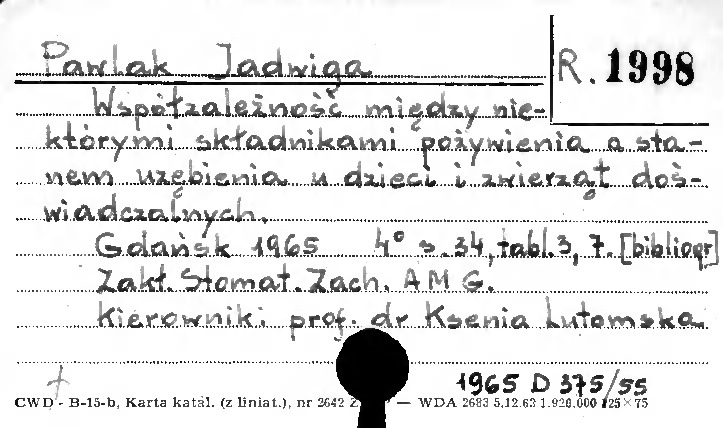 Pawlak Jadwiga
R. 1998
Współzależność między nie-
którymi składnikami pożywienia a sta-
nem uzębienia u dzieci i zwierząt doś-
wiadczalnych.
Gdańsk 1965 4° s. 34, tabl. 3, 7. [bibliogr]
Zakł. Stomat. Zach. A M G.
Kierownik: prof. dr Ksenia Lutomska
1965 D 375/55
CWD - B-15-b, Karta katal. (z liniat.), nr 2642 — WDA 2683 5.12.63 1.920.000 125×75